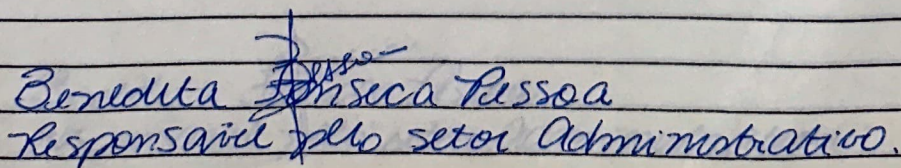 Benedita Fonseca Pessoa
Responsavel pelo setor Administrativo.